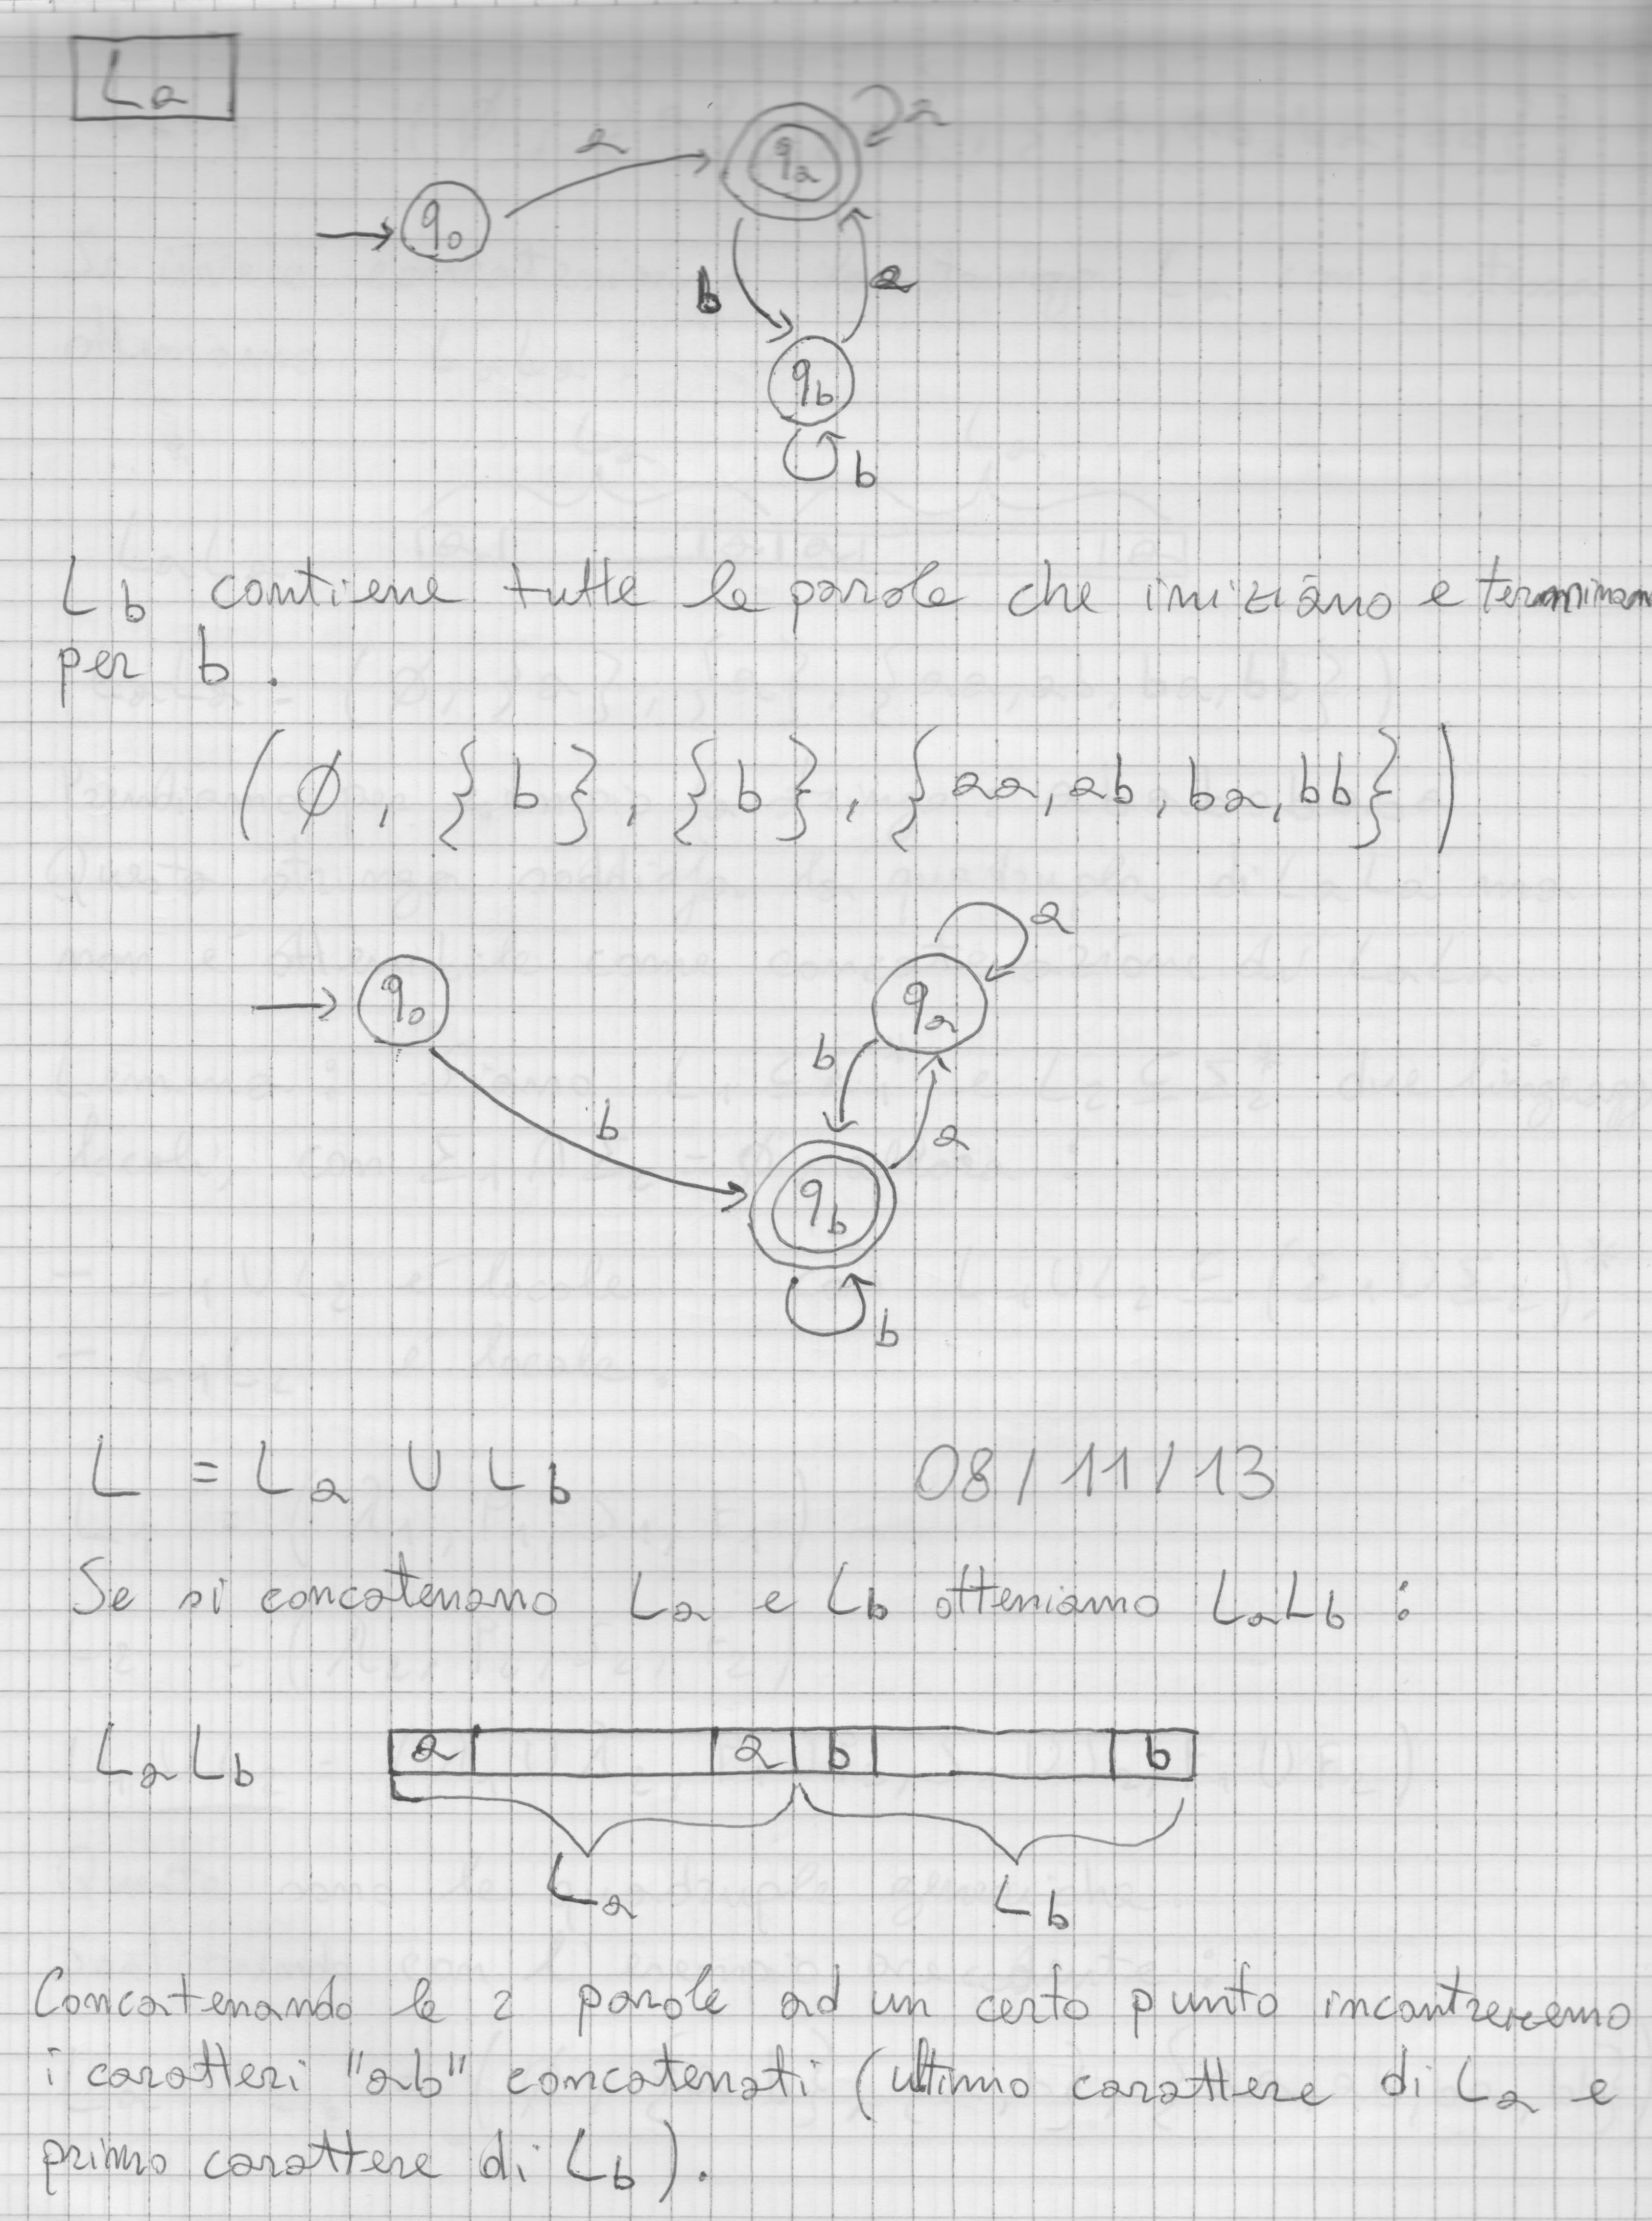 La
a
a
q0
qa
b
a
qb
b
Lb contiene tutte le parole che iniziano e terminano
per b.
(∅, {b}, {b}, {aa, ab, ba, bb})
a
q0
qa
b
b
a
qb
b
L = La ∪ Lb 08/11/13
Se si concatenano La e Lb otteniamo LaLb :
LaLb a a b b
La Lb
Concatenando le 2 parole ad un certo punto incontreremo
i caratteri "ab" concatenati (ultimo carattere di La e
primo carattere di Lb).